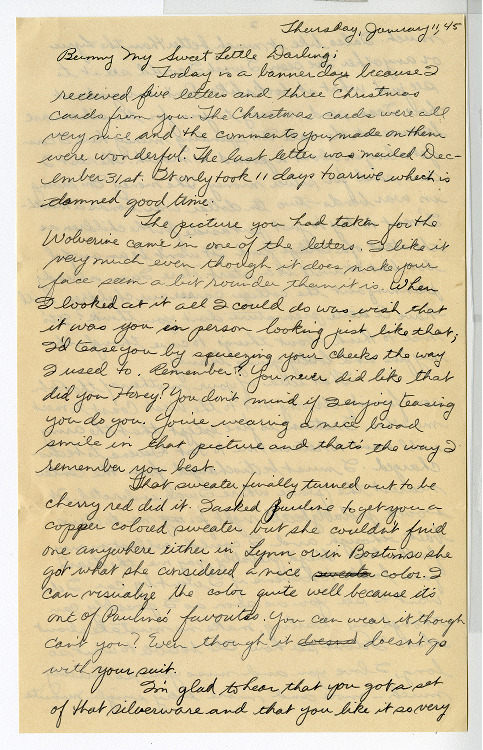 Thursday, January 11, 45
Bunny My Sweet Little Darling;
Today is a banner day because I
received five letters and three Christmas
cards from you. The Christmas cards were all
very nice and the comments you made on them
were wonderful. The last letter was mailed Dec-
ember 31st. It only took 11 days to arrive which is
damned good time.
The picture you had taken for the
Wolverine came in one of the letters. I like it
very much even though it does make your
face seem a bit rounder than it is. When
I looked at it all I could do was wish that
it was you in person looking just like that;
I'd tease you by squeezing your cheeks the way
I used to. Remember? You never did like that
did you Honey? You don't mind if I enjoy teasing
you do you. You're wearing a nice broad
smile in that picture and that's the way I
remember you best.
That sweater finally turned out to be
cherry red did it. I asked Pauline to get you a
copper colored sweater but she couldn't find
one anywhere either in Lynn or in Boston so she
got what she considered a nice sweater color. I
can visualize the color quite well because it's
one of Pauline's favourites. You can wear it though
can't you? Even though it doesnt doesn't go
with your suit.
I'm glad to hear that you got a set
of that silverware and that you like it so very